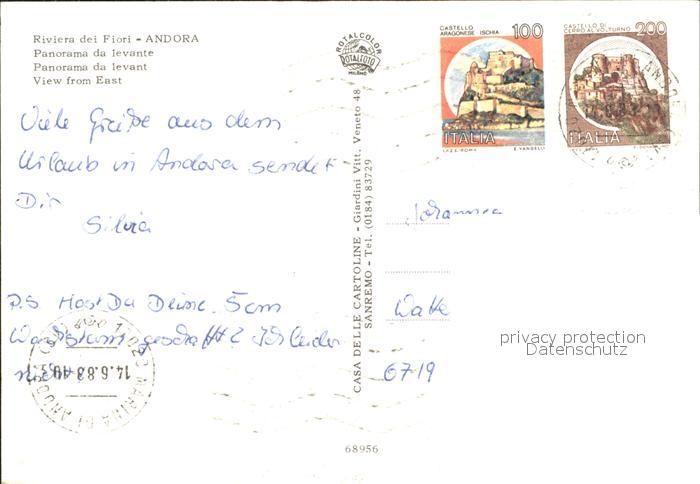 Riviera dei Fiori - ANDORA
Panorama da levante
Panorama da levant
View from East
ROTALCOLOR
ROTALFOTO
MILANO
CASTELLO ARAGONESE ISCHIA 100
ITALIA
I.P.Z.S. ROMA E. VANGELLI
CASTELLO DI CERRO AL VOLTURNO 200
ITALIA
Viele Grüße aus dem
Urlaub in Andora sendet
Dir
Silvia
P.S. Hast Du Deine 5cm
geschafft? Ich leider
nicht
14.6.83
MARINA DI ANDORA
CASA DELLE CARTOLINE - Giardini Vitt. Veneto 48
SANREMO - Tel. (0184) 83729
Johannes
6719
privacy protection
Datenschutz
68956